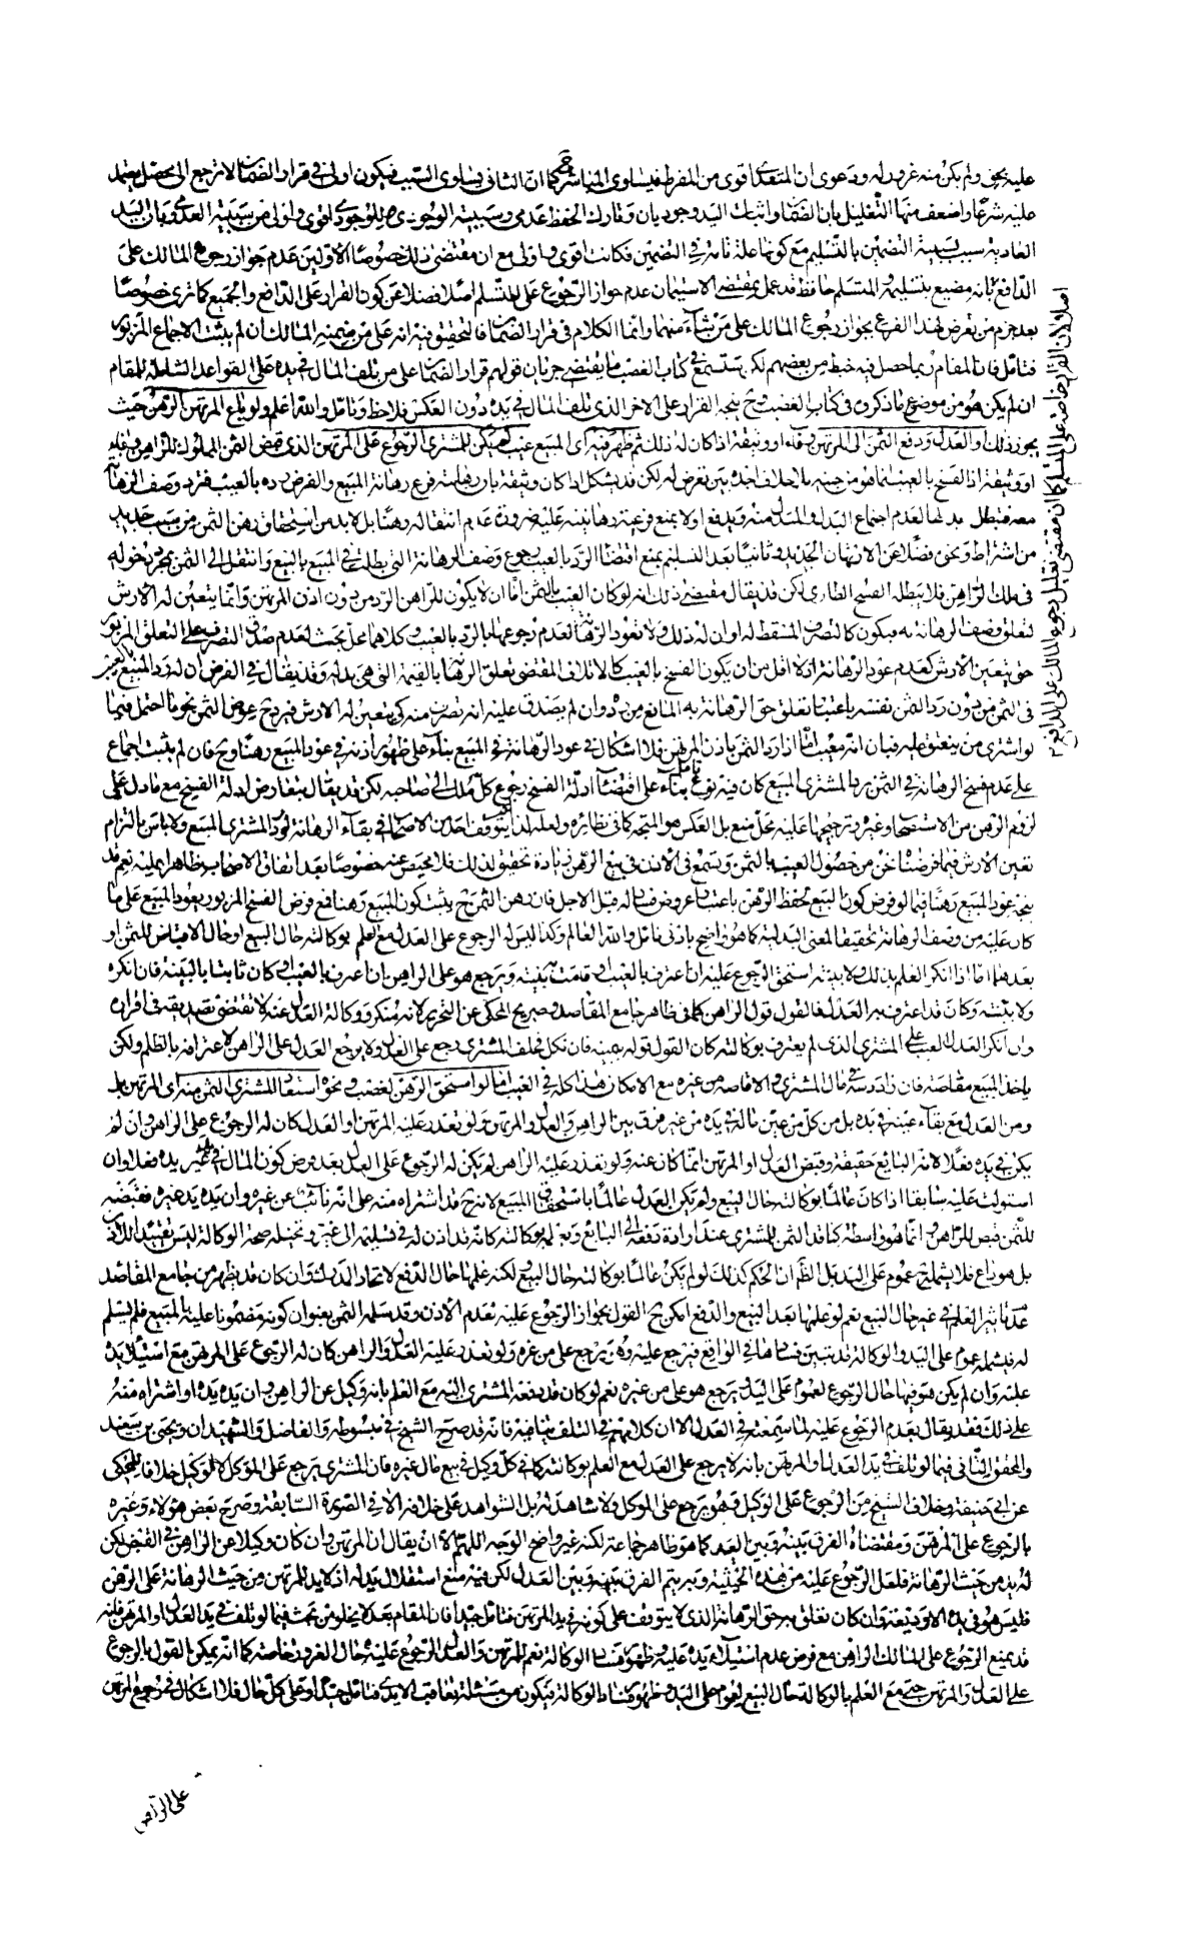 عليه بحق ولم يكن منه غرور له ودعوى ان المتعدي اقوى من المفرط فيساوى المباشر كما ان الثانى يساوى السبب فيكون اولى في قرار الضمان لا ترجع الى محصل يعتمد
عليه شرعا واضعف منها التعليل بان الضمان واثبات اليد وجوديان وتارك الحفظ عدمي وسببية الوجودي للوجودي اقوى واولى من سببية العدمي وبان اليد
العادية سبب بسببية التضمين بالتسليم مع كونها علة تامة في التضمين فكانت اقوى واولى مع ان مقتضى ذلك خصوصا الاولين عدم جواز رجوع المالك على
الدافع بانه مضيع بتسليمه والمتسلم حافظ قد عمل بمقتضى الاستيمان عدم جواز الرجوع على المتسلم اصلا فضلا عن كون القرار على الدافع والجميع كما ترى خصوصا
بعد جزم من تعرض لهذا الفرع بجواز رجوع المالك على من شاء منهما وانما الكلام في قرار الضمان فالتحقيق فيه انه على من ضمنه المالك ان لم يثبت الاجماع المزبور
فتامل فان المقام ربما حصل فيه خبط من بعضهم لكن ستسمع في كتاب الغصب ما يقتضى جريان قولهم قرار الضمان على من تلف المال في يده على القواعد الشاملة للمقام
ان لم يكن هو من موضوع ما ذكروه في كتاب الغصب وح يتجه القرار على الاخر الذى تلف المال في يده دون العكس فلاحظ وتامل والله اعلم ولو باع المرتهن الرهن حيث
يجوز ذلك او العدل ودفع الثمن الى المرتهن وفاء او وثيقة اذا كان له ذلك ثم ظهر فيه اى المبيع عيب لم يكن للمشترى الرجوع على المرتهن الذى قبض الثمن المملوك للراهن وفاء
او وثيقة اذ الفسخ بالعيب انما هو من حينه بلا خلاف اجده بين من تعرض له لكن قد يشكل اذا كان وثيقة بان رهانته فرع رهانة المبيع والفرض رده بالعيب فترد وصف الرهانة
معه فتبطل بدلها لعدم اجتماع البدل والمبدل منه ويدفع اولا بمنع فرعية رهانيته عليه ضرورة عدم انتقاله رهنا بل لا بد من استحقاق رهن الثمن من سبب جديد
من اشتراط ونحوه فضلا عن الارتهان الجديد وثانيا بعد التسليم بمنع اقتضاء الرد بالعيب رجوع وصف الرهانة التى بطلت في المبيع بالبيع وانتقل الى الثمن بمجرد دخوله
في ملك الراهن فلا يبطله الفسخ الطارى لكن قد يقال مقتضى ذلك انه لو كان العيب بالثمن اما ان لا يكون للراهن الرد من دون اذن المرتهن وانما يتعين له الارش
لتعلق وصف الرهانة به فيكون كالتصرف المسقط له او ان له ذلك ولا تعود الرهانة لعدم رجوعها بالرد بالعيب وكلاهما محل بحث لعدم صدق التصرف على التعلق المزبور
حتى يتعين الارش كعدم عود الرهانة اذ لا اقل من ان يكون الفسخ بالعيب كالاتلاف المقتضى تعلق الرهانة بالقيمة التى هى بدله وقد يقال في الفرض ان له رد المبيع بالعيب
في الثمن من دون رد الثمن نفسه باعتبار تعلق حق الرهانة به المانع من رده وان لم يصدق عليه انه تصرف منه كى يتعين له الارش فيرد ح عوض الثمن نحو ما احتمل فيما
لو اشترى من ينعتق عليه فبان انه معيب اما اذا رد الثمن باذن المرتهن فلا اشكال في عود الرهانة في المبيع بناء على ظهور اذنه في عود المبيع رهنا وح فان لم يثبت اجماع
على عدم فسخ الرهانة في الثمن برد المشترى المبيع كان فيه نوع تامل بناء على اقتضاء ادلة الفسخ رجوع كل ملك الى صاحبه لكن قد يقال بتعارض ادلة الفسخ مع ما دل على
لزوم الرهن من الاستصحاب وغيره وترجيحها عليه محل منع بل العكس هو المتجه كما في نظائره ولعله لذا لم يتوقف احد من الاصحاب في بقاء الرهانة لو رد المشترى المبيع ولا باس بالتزام
تعين الارش فيما فرضناه نحن من حصول العيب بالثمن وستسمع في الاذن في بيع الرهن زيادة تحقيق لذلك فلا محيص عنه خصوصا بعد اتفاق الاصحاب ظاهرا عليه نعم قد
يتجه عود المبيع رهنا فيما لو فرض كون البيع لحفظ الرهن باعتبار عروض فساد له قبل الاجل فان رهن الثمن ح يثبت كون المبيع رهنا فمع فرض الفسخ المزبور يعود المبيع على ما
كان عليه من وصف الرهانة تحقيقا لمعنى البدلية كما هو واضح بادنى تامل والله العالم وكذا ليس له الرجوع على العدل مع العلم بوكالته حال البيع او حال الاقباض للثمن او
بعدهما اما اذا انكر العلم بذلك ولا بينة استحق الرجوع عليه ان اعترف بالعيب او قامت به بينة ويرجع هو على الراهن ان اعترف بالعيب او كان ثابتا بالبينة فان انكره
ولا بينة وكان قد اعترف به العدل فالقول قول الراهن كما في ظاهر جامع المقاصد وصريح المحكى عن التحرير لانه منكر ووكالة العدل عنه لا تقتضى تصديقه في اقراره
وان انكر العدل العيب على المشترى الذى لم يعترف بوكالته كان القول قوله بيمينه فان نكل فحلف المشترى رجع على العدل ولا يرجع العدل على الراهن لاعترافه بالظلم ولكن
ياخذ المبيع مقاصة فان زاد دسه في مال المشترى والا قاصه من غيره مع الامكان هذا كله في العيب اما لو استحق الرهن لغصب ونحوه استعاد المشترى الثمن منه اى المرتهن بل
ومن العدل مع بقاء عينه في يده بل من كل من عين ماله في يده من غير فرق بين الراهن والعدل والمرتهن ولو تعذر عليه المرتهن او العدل كان له الرجوع على الراهن وان لم
يكن في يده فعلا لانه البايع حقيقة وقبض العدل او المرتهن انما كان عنه ولو تعذر عليه الراهن لم يكن له الرجوع على العدل بعد فرض كون المال في غير يده فعلا وان
استولت عليه سابقا اذا كان عالما بوكالته حال البيع ولم يكن العدل عالما باستحقاق المبيع لانه ح قد اشتراه منه على انه نائب عن غيره وان يده يد غيره فقبضه
للثمن قبض للراهن وانما هو واسطة كناقد الثمن للمشترى عند ارادة دفعه الى البائع وبعلمه بوكالته كانه قد اذن له في تسليمه الى غيره وتخيله صحة الوكالة ليس تقييدا للاذن
بل هو داع فلا يشمله ح عموم على اليد بل الظاهر ان الحكم كذلك لو لم يكن عالما بوكالته حال البيع لكنه علمها حال الدفع لاتحاد المدرك وان كان قد يظهر من جامع المقاصد
عدم تاثير العلم في غير حال البيع نعم لو علمها بعد البيع والدفع امكن ح القول بجواز الرجوع عليه لعدم الاذن وقد سلمه الثمن بعنوان كونه مضمونا عليه بالمبيع فلم يسلم
له فيشمله عموم على اليد والوكالة قد تبين فسادها في الواقع فيرجع عليه وهو يرجع على من غره ولو تعذر عليه العدل والراهن كان له الرجوع على المرتهن مع استيلاء يده
عليه وان لم يكن هو فيها حال الرجوع لعموم على اليد ويرجع هو على من غره نعم لو كان قد دفعه المشترى اليه مع العلم بانه وكيل عن الراهن وان يده يده او اشتراه منه
على ذلك فقد يقال بعدم الرجوع عليه لما سمعته في العدل الا ان كلامهم في التلف ينافيه فانه قد صرح الشيخ في مبسوطه والفاضل والشهيدان ويحيى بن سعيد
والمحقق الثانى فيما لو تلف في يد العدل او المرتهن بانه لا يرجع على العدل مع العلم بوكالته كما في كل وكيل في بيع مال غيره فان المشترى يرجع على الموكل لا الوكيل خلافا للمحكى
عن ابى حنيفة وخلاف الشيخ من الرجوع على الوكيل وهو يرجع على الموكل ولا شاهد له بل الشواهد على خلافه الا في الصورة السابقة وصرح بعض هؤلاء وغيره
بالرجوع على المرتهن ومقتضاه الفرق بينه وبين العدل كما هو ظاهر جماعة لكنه غير واضح الوجه اللهم الا ان يقال ان المرتهن وان كان وكيلا عن الراهن في القبض لكن
له يد من حيث الرهانة فلعل الرجوع عليه من هذه الحيثية وبه يتم الفرق بينه وبين العدل لكن فيه منع استقلال يد له اذ لا يد للمرتهن من حيث الرهانة على الرهن
فليس هو في يده الا وديعة وان كان تعلق به حق الرهانة الذى لا يتوقف على كونه في يد المرتهن فتامل جيدا فان المقام بعد لا يخلو من بحث فيما لو تلف في يد العدل او المرتهن فانه
قد يمنع الرجوع على المالك الراهن مع فرض عدم استيلاء يده عليه وظهور فساد الوكالة نعم للمرتهن والعدل الرجوع عليه حال الغرور خاصة كما انه يمكن القول بالرجوع
على العدل والمرتهن حتى مع العلم بالوكالة حال البيع لعموم على اليد وظهور فساد الوكالة فيكون من مسئلة تعاقب الايدى فتامل جيدا وعلى كل حال فلا اشكال في رجوع المرتهن
اصلا لان القرار خاصة على المتسلم كما ان مقتضى تعليل رجوع المالك على الدافع
على الراهن